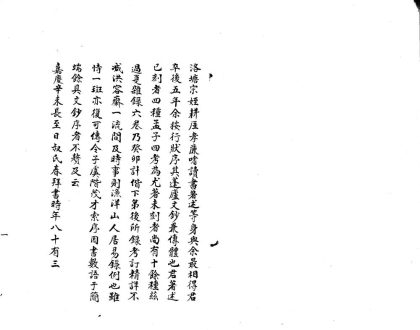 洛塘宗姪耕厓孝廉嗜讀書著述等身與余最相得君
卒後五年余按行狀序其蓬廬文鈔兼傳體也君著述
已刻者四種孟子四考為尤著未刻者尚有十餘種茲
過夏雜錄六卷乃癸卯計偕下第後所錄考訂精詳不
減洪容齋一流間及時事則漁洋山人居易錄例也雖
特一斑亦復可傳令子虞階茂才索序因書數語于簡
端餘具文鈔序者不贅及云
嘉慶辛未長至日叔氏春拜書時年八十有三